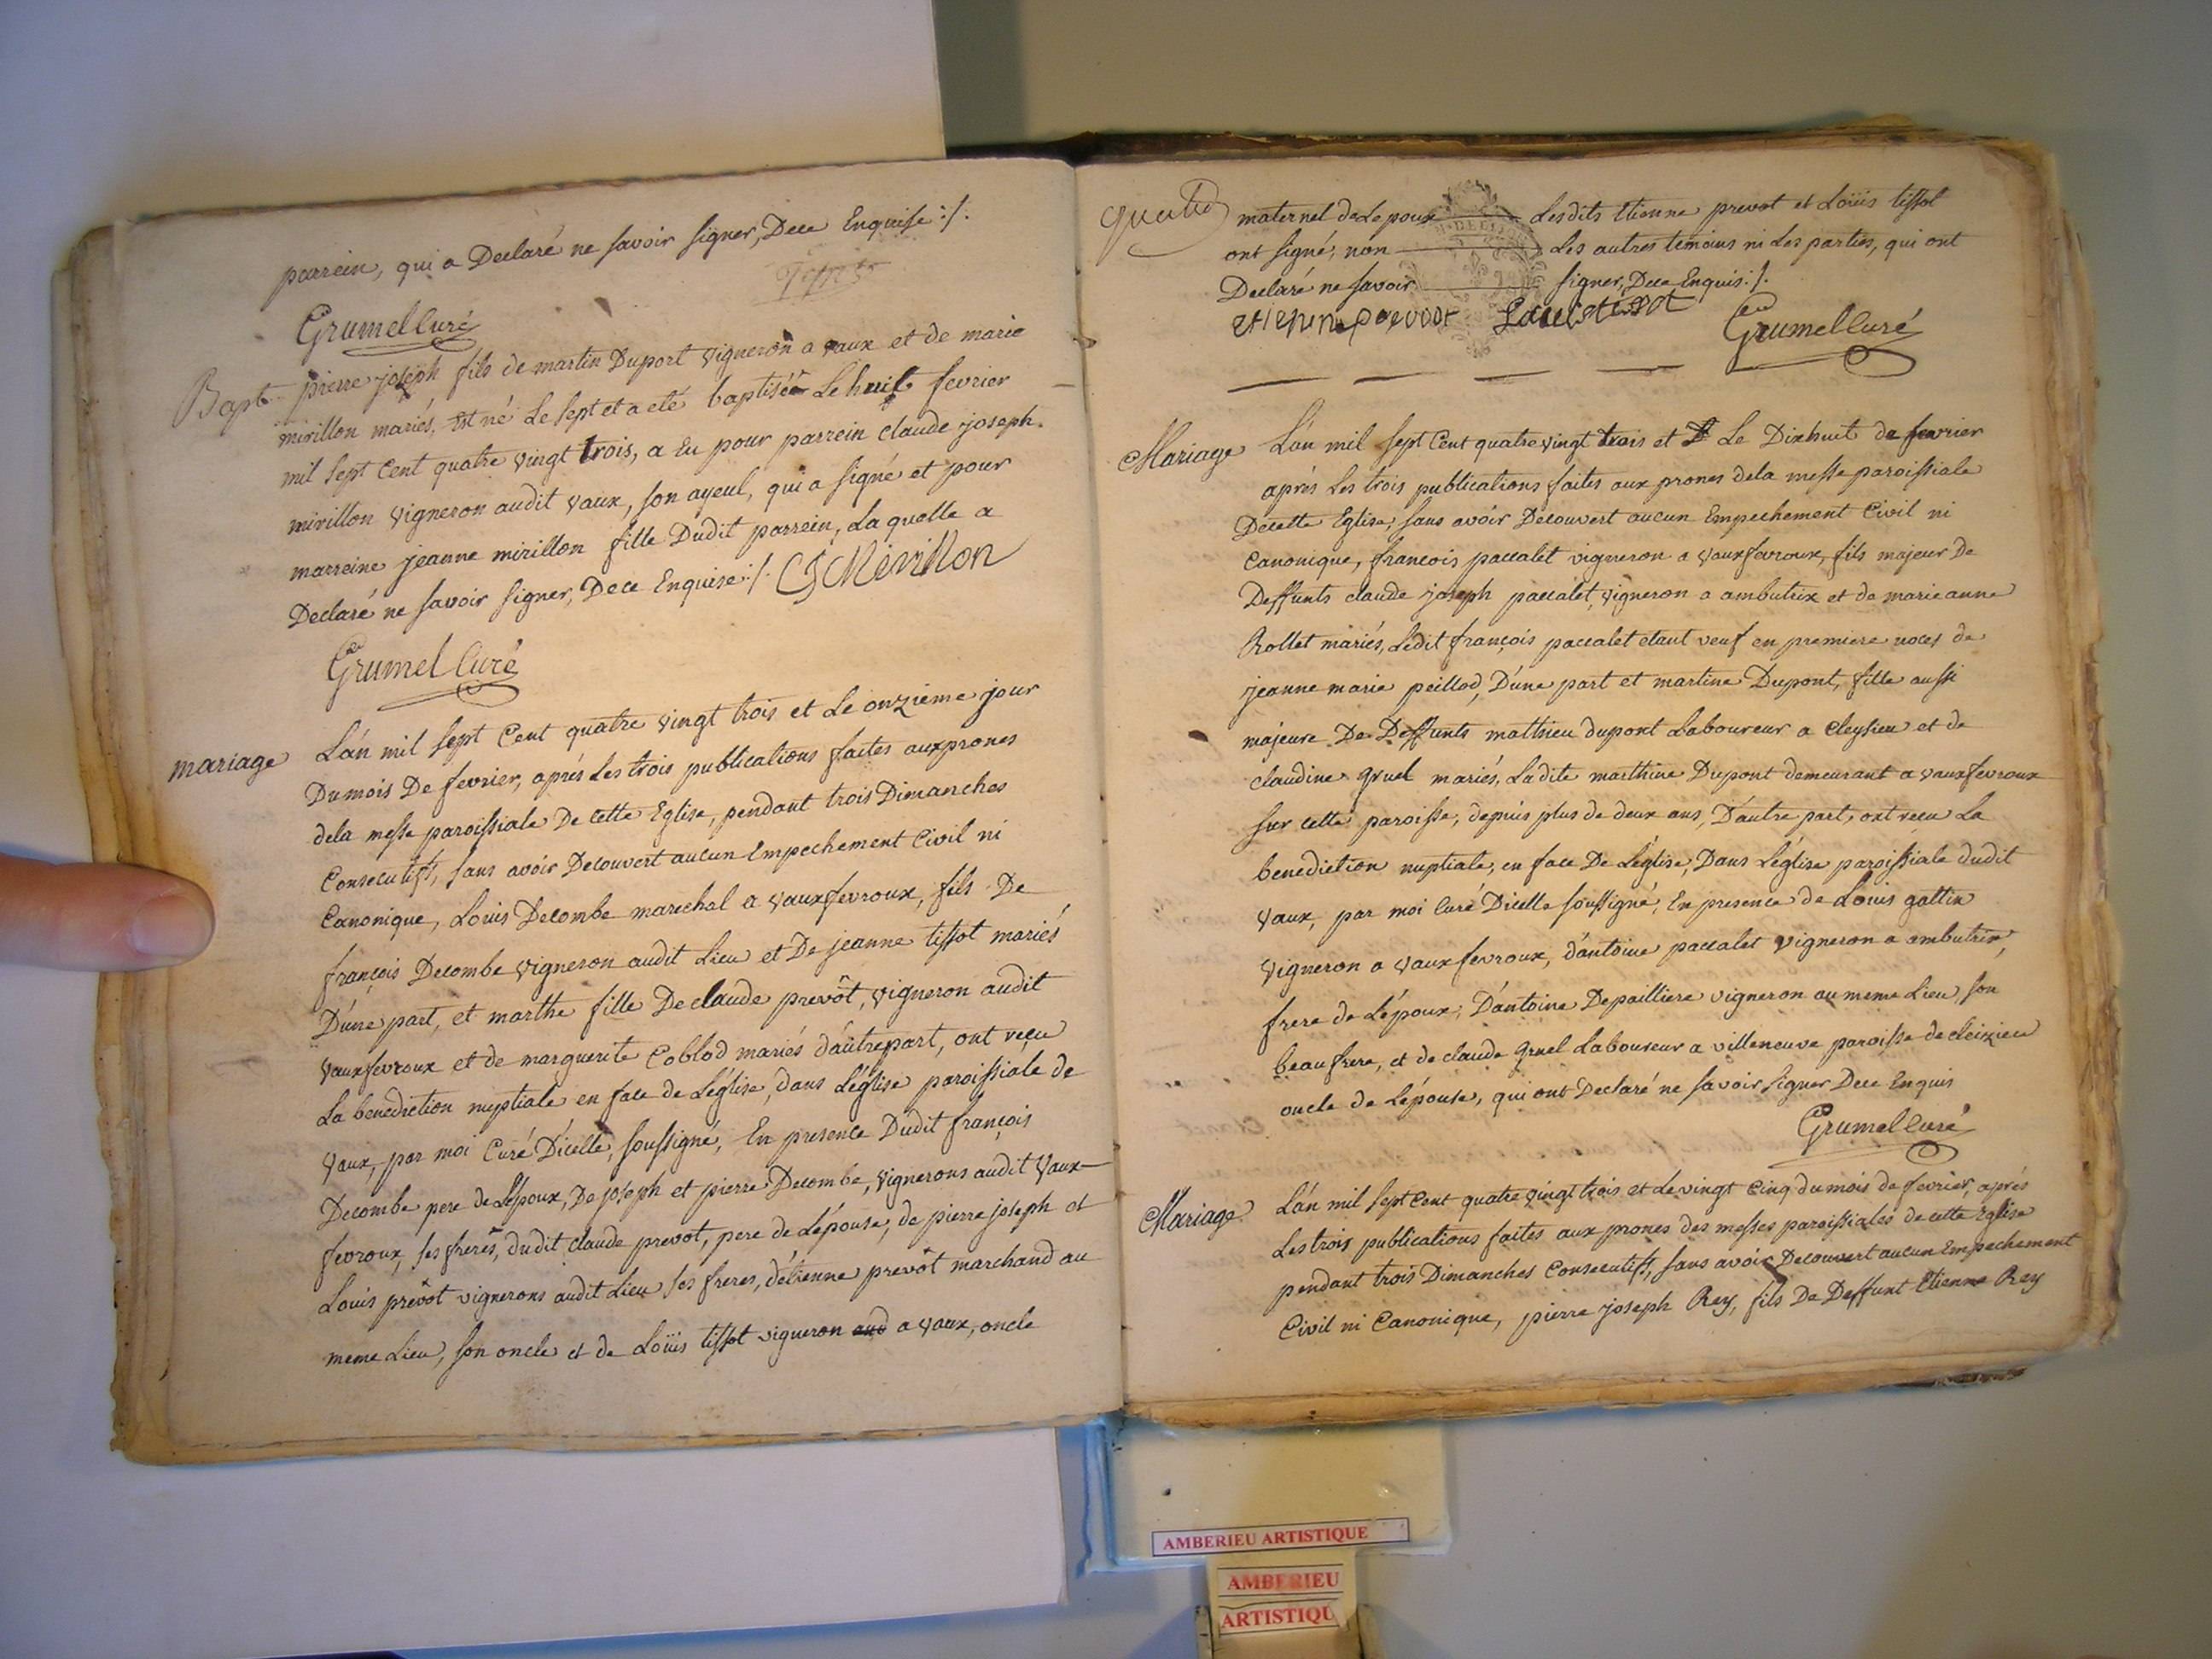 parrein, qui a Declaré ne savoir signer, Dece Enquise ./.
Grumel Curé
Bapt
pierre joseph fils de martin Duport vigneron a vaux et de marie
mirillon mariés, est né Le sept et a eté baptisé Le huit fevrier
mil sept Cent quatre vingt trois, a Eu pour parrein claude joseph
mirillon vigneron audit vaux, son ayeul, qui a signé et pour
marreine jeanne mirillon fille Dudit parrein, La quelle a
Declaré ne savoir signer, Dece Enquise ./. CJ Mirillon
Grumel Curé
mariage
L'an mil sept Cent quatre vingt trois et Le onzieme jour
Du mois De fevrier, aprés Les trois publications faites aux prones
dela messe paroissiale De cette Eglise, pendant trois Dimanches
Consecutifs, sans avoir Decouvert aucun Empechement Civil ni
Canonique, Louis Decombe marechal a vauxfevroux, fils De
françois Decombe vigneron audit Lieu et De jeanne tissot mariés
D'une part, et marthe fille De claude prevôt, vigneron audit
vauxfevroux et de marguerite Coblod mariés d'autrepart, ont reçu
La benediction nuptiale en face de L'église, dans L'église paroissiale de
vaux, par moi Curé D'icelle, soussigné, En presence Dudit françois
Decombe pere de L'époux, De joseph et pierre Decombe, vignerons audit vaux-
fevroux, ses freres, dudit claude prevot, pere de L'épouse, de pierre joseph et
Louis prevôt vignerons audit Lieu ses freres, d'etienne prevôt marchand au
meme Lieu, son oncle et de Loüis tissot vigneron aud a vaux, oncle
maternel de Lepoux Lesdits Etienne prevot et Loüis tissot
ont signé, non Les autres temoins ni Les parties, qui ont
Declaré ne savoir signer, Dece Enquis ./.
etienne prevot Louis tissot Grumel Curé
Mariage
L'an mil sept Cent quatre vingt trois et Le Dixhuit de fevrier
aprés Les trois publications faites aux prones dela messe paroissiale
Decette Eglise, sans avoir Decouvert aucun Empechement Civil ni
Canonique, francois paccalet vigneron a vauxfevroux, fils majeur De
Deffunts claude joseph paccalet, vigneron a ambutrix et de marie anne
Rollet mariés, Ledit françois paccalet etant veuf en premiere noces de
jeanne marie peillod, D'une part et martine Dupont, fille aussi
majeure De Deffunts mathieu dupont Laboureur a Cleysieu et de
claudine gruel mariés, Ladite marthine Dupont demeurant a vauxfevroux
sur cette paroisse, depuis plus de deux ans, D'autre part, ont recu La
benediction nuptiale, en face De L'église, Dans L'église paroissiale dudit
vaux, par moi Curé D'icelle soussigné, En presence de Louis gattin
vigneron a vauxfevroux, d'antoine paccalet vigneron a ambutrix,
frere de L'époux, D'antoine Depailliere vigneron au meme Lieu, son
beaufrere, et de claude gruel Laboureur a villeneuve paroisse de cleizieu
oncle de L'épouse, qui ont Declaré ne savoir signer Dece Enquis
Grumel Curé
Mariage
L'an mil sept Cent quatre vingt trois et Le vingt Cinq du mois de fevrier, aprés
Les trois publications faites aux prones des messes paroissiales de cette Eglise
pendant trois Dimanches Consecutifs, sans avoir Decouvert aucun Empechement
Civil ni Canonique, pierre joseph Rey, fils De Deffunt Etienne Rey
AMBERIEU ARTISTIQUE
AMBERIEU
ARTISTIQU